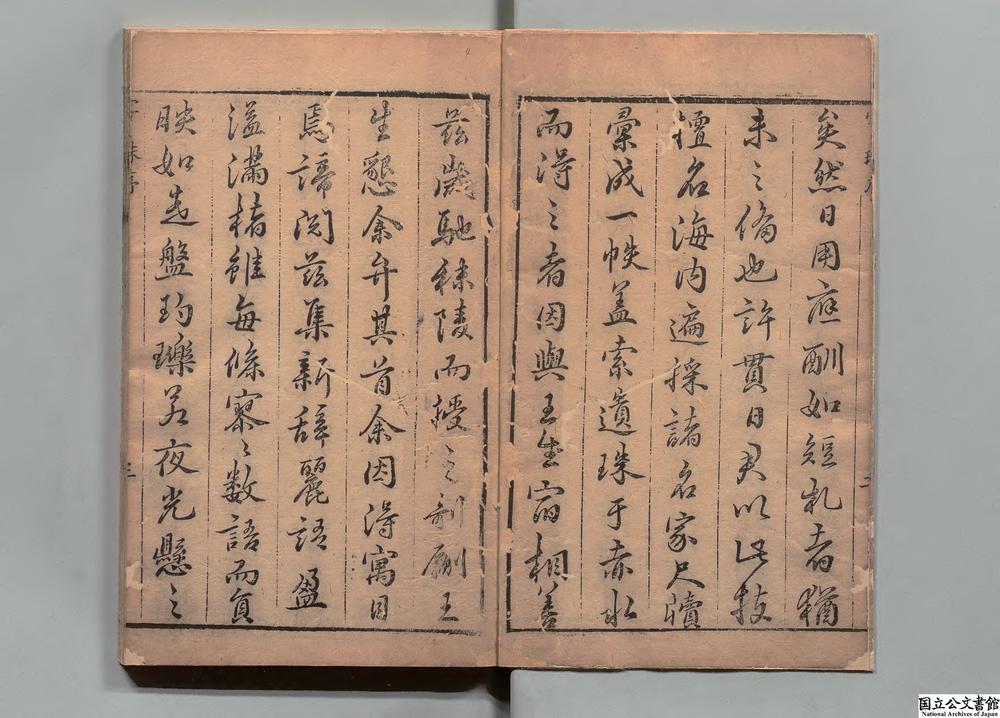 矣然日用应酬如短札者猶
未之備也許貫日君以此技
擅名海内遍採諸名家尺牘
彙成一帙盖索遺珠于赤水
而得之者因與王生宿相善
兹歲馳秣陵而授之剞劂王
生懇余弁其首余因得寓目
焉諦閲兹集新辭麗語盈
溢滿楮雖每條寥〻数語而貟
映如走盤玓瓅若夜光懸之
三
国立公文書館
National Archives of Japan